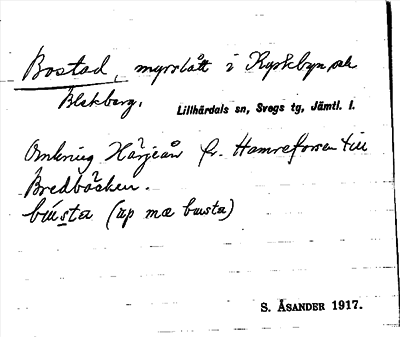 Bostad, myrslått i Kyrkbyn och
Blekberg.
Lillhärdals sn, Svegs tg, Jämtl. l.
Omkring Härjeån fr. Hamreforsen till
Bredbäcken.
busta (up mæ busta)
S. ÅSANDER 1917.